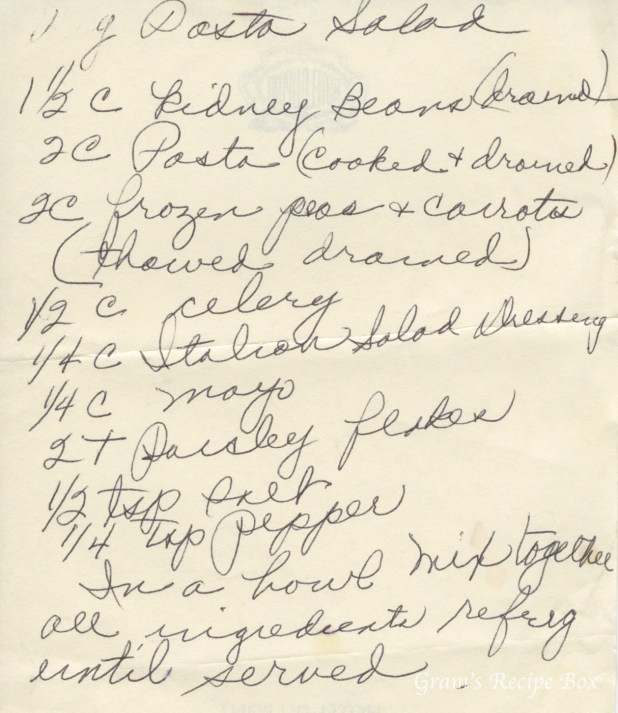 Pasta Salad
1 1/2 C Kidney Beans (drained)
2C Pasta (cooked + drained)
2C frozen peas + carrots
(thawed drained)
1/2 C celery
1/4 C Italian Salad Dressing
1/4 C mayo
2 T Parsley flakes
1/2 tsp salt
1/4 tsp pepper
In a bowl mix together
all ingredients refrig
until served
Gram's Recipe Box